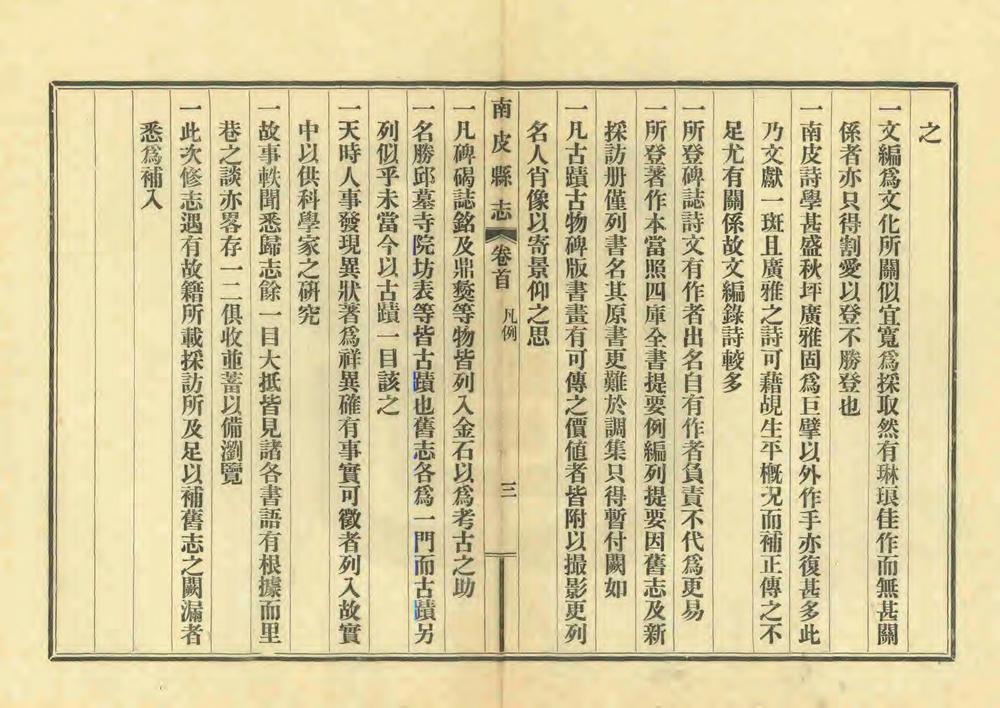 之
一文編爲文化所關似宜寬爲採取然有琳琅佳作而無甚關
係者亦只得割愛以登不勝登也
一南皮詩學甚盛秋坪廣雅固爲巨擘以外作手亦復甚多此
乃文獻一斑且廣雅之詩可藉覘生平槪況而補正傳之不
足尤有關係故文編錄詩較多
一所登碑誌詩文有作者出名自有作者負責不代爲更易
一所登著作本當照四庫全書提要例編列提要因舊志及新
採訪册僅列書名其原書更難於調集只得暫付闕如
一凡古蹟古物碑版書畫有可傳之價値者皆附以撮影更列
名人肖像以寄景仰之思
南皮縣志 卷首 凡例 三
一凡碑碣誌銘及鼎彝等物皆列入金石以爲考古之助
一名勝邱墓寺院坊表等皆古蹟也舊志各爲一門而古蹟另
列似乎未當今以古蹟一目該之
一天時人事發現異狀著爲祥異確有事實可徵者列入故實
中以供科學家之研究
一故事軼聞悉歸志餘一目大抵皆見諸各書語有根據而里
巷之談亦畧存一二俱收並蓄以備瀏覽
一此次修志遇有故籍所載採訪所及足以補舊志之闕漏者
悉爲補入